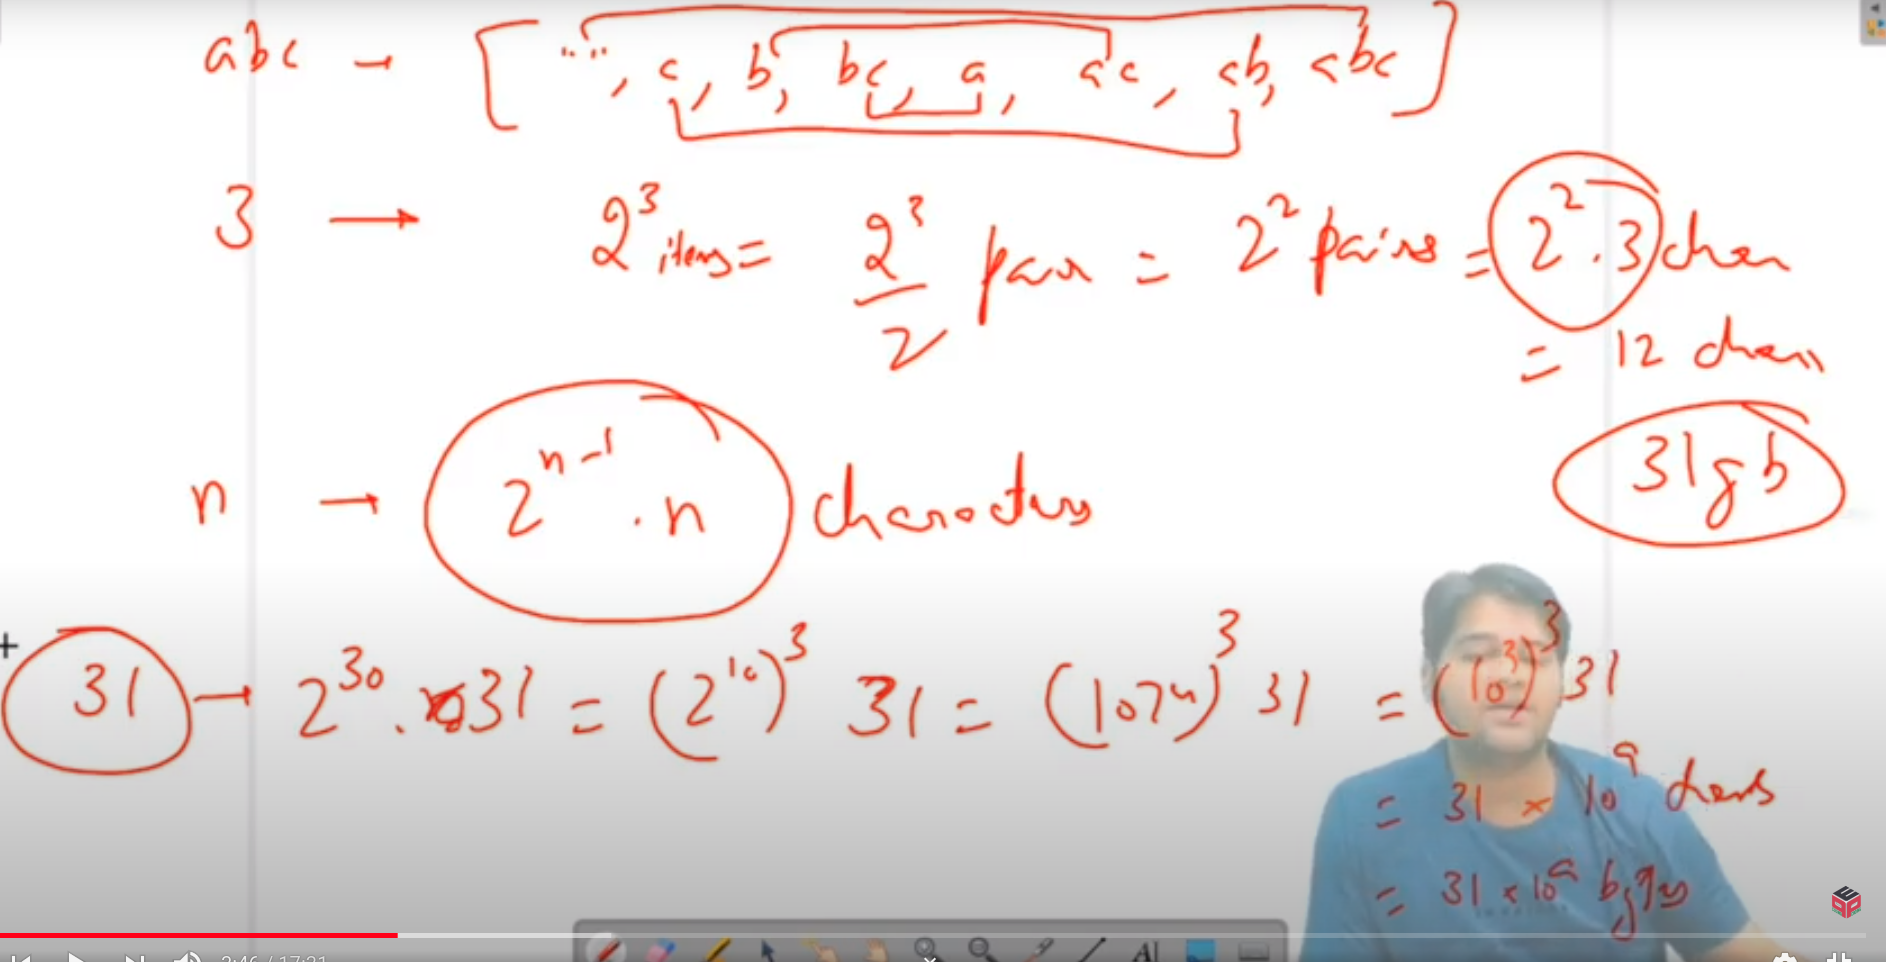 abc → ["", c, b, bc, a, ac, ab, abc]
3 → 2³ items = 2³/2 pair = 2² pairs = 2² . 3 char
= 12 chars
31gb
n → 2ⁿ⁻¹ . n characters
31 → 2³⁰ . 31 = (2¹⁰)³ 31 = (1024)³ 31 = (10³)³ 31
= 31 × 10⁹ chars
= 31 × 10⁹ bytes
AI